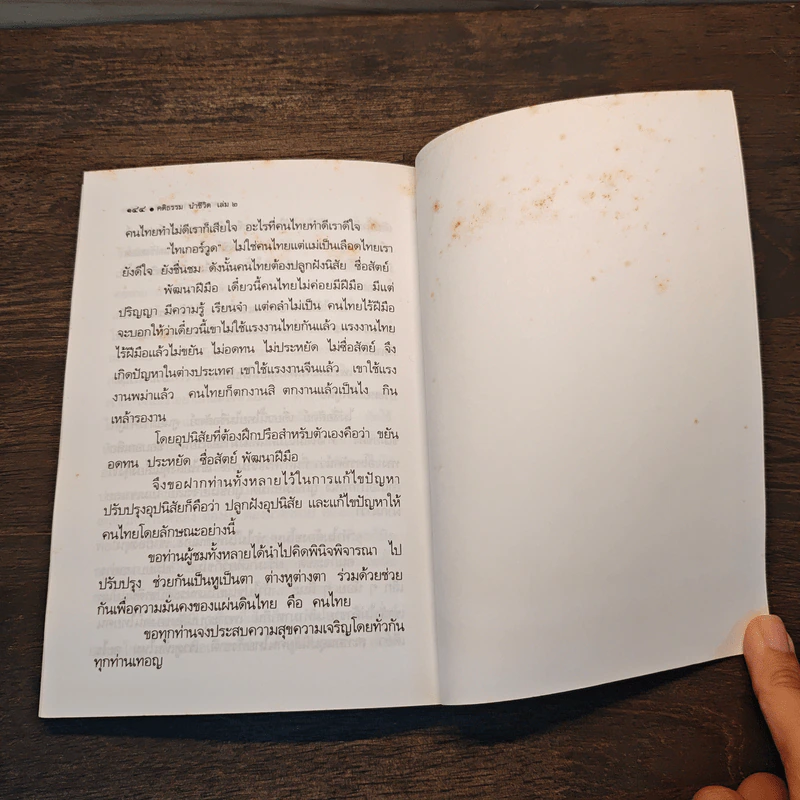 ๑๔๔ • คติธรรม นำชีวิต เล่ม ๒
คนไทยทำไม่ดีเราก็เสียใจ อะไรที่คนไทยทำดีเราดีใจ
"ไทเกอร์วูด" ไม่ใช่คนไทยแต่แม่เป็นเลือดไทยเรา
ยังดีใจ ยังชื่นชม ดังนั้นคนไทยต้องปลูกฝังนิสัย ซื่อสัตย์
พัฒนาฝีมือ เดี๋ยวนี้คนไทยไม่ค่อยมีฝีมือ มีแต่
ปริญญา มีความรู้ เรียนจำ แต่คลำไม่เป็น คนไทยไร้ฝีมือ
จะบอกให้ว่าเดี๋ยวนี้เขาไม่ใช้แรงงานไทยกันแล้ว แรงงานไทย
ไร้ฝีมือแล้วไม่ขยัน ไม่อดทน ไม่ประหยัด ไม่ซื่อสัตย์ จึง
เกิดปัญหาในต่างประเทศ เขาใช้แรงงานจีนแล้ว เขาใช้แรง
งานพม่าแล้ว คนไทยก็ตกงานสิ ตกงานแล้วเป็นไง กิน
เหล้ารองาน
โดยอุปนิสัยที่ต้องฝึกปรือสำหรับตัวเองคือว่า ขยัน
อดทน ประหยัด ซื่อสัตย์ พัฒนาฝีมือ
จึงขอฝากท่านทั้งหลายไว้ในการแก้ไขปัญหา
ปรับปรุงอุปนิสัยก็คือว่า ปลูกฝังอุปนิสัย และแก้ไขปัญหาให้
คนไทยโดยลักษณะอย่างนี้
ขอท่านผู้ชมทั้งหลายได้นำไปคิดพินิจพิจารณา ไป
ปรับปรุง ช่วยกันเป็นหูเป็นตา ต่างหูต่างตา ร่วมด้วยช่วย
กันเพื่อความมั่นคงของแผ่นดินไทย คือ คนไทย
ขอทุกท่านจงประสบความสุขความเจริญโดยทั่วกัน
ทุกท่านเทอญ